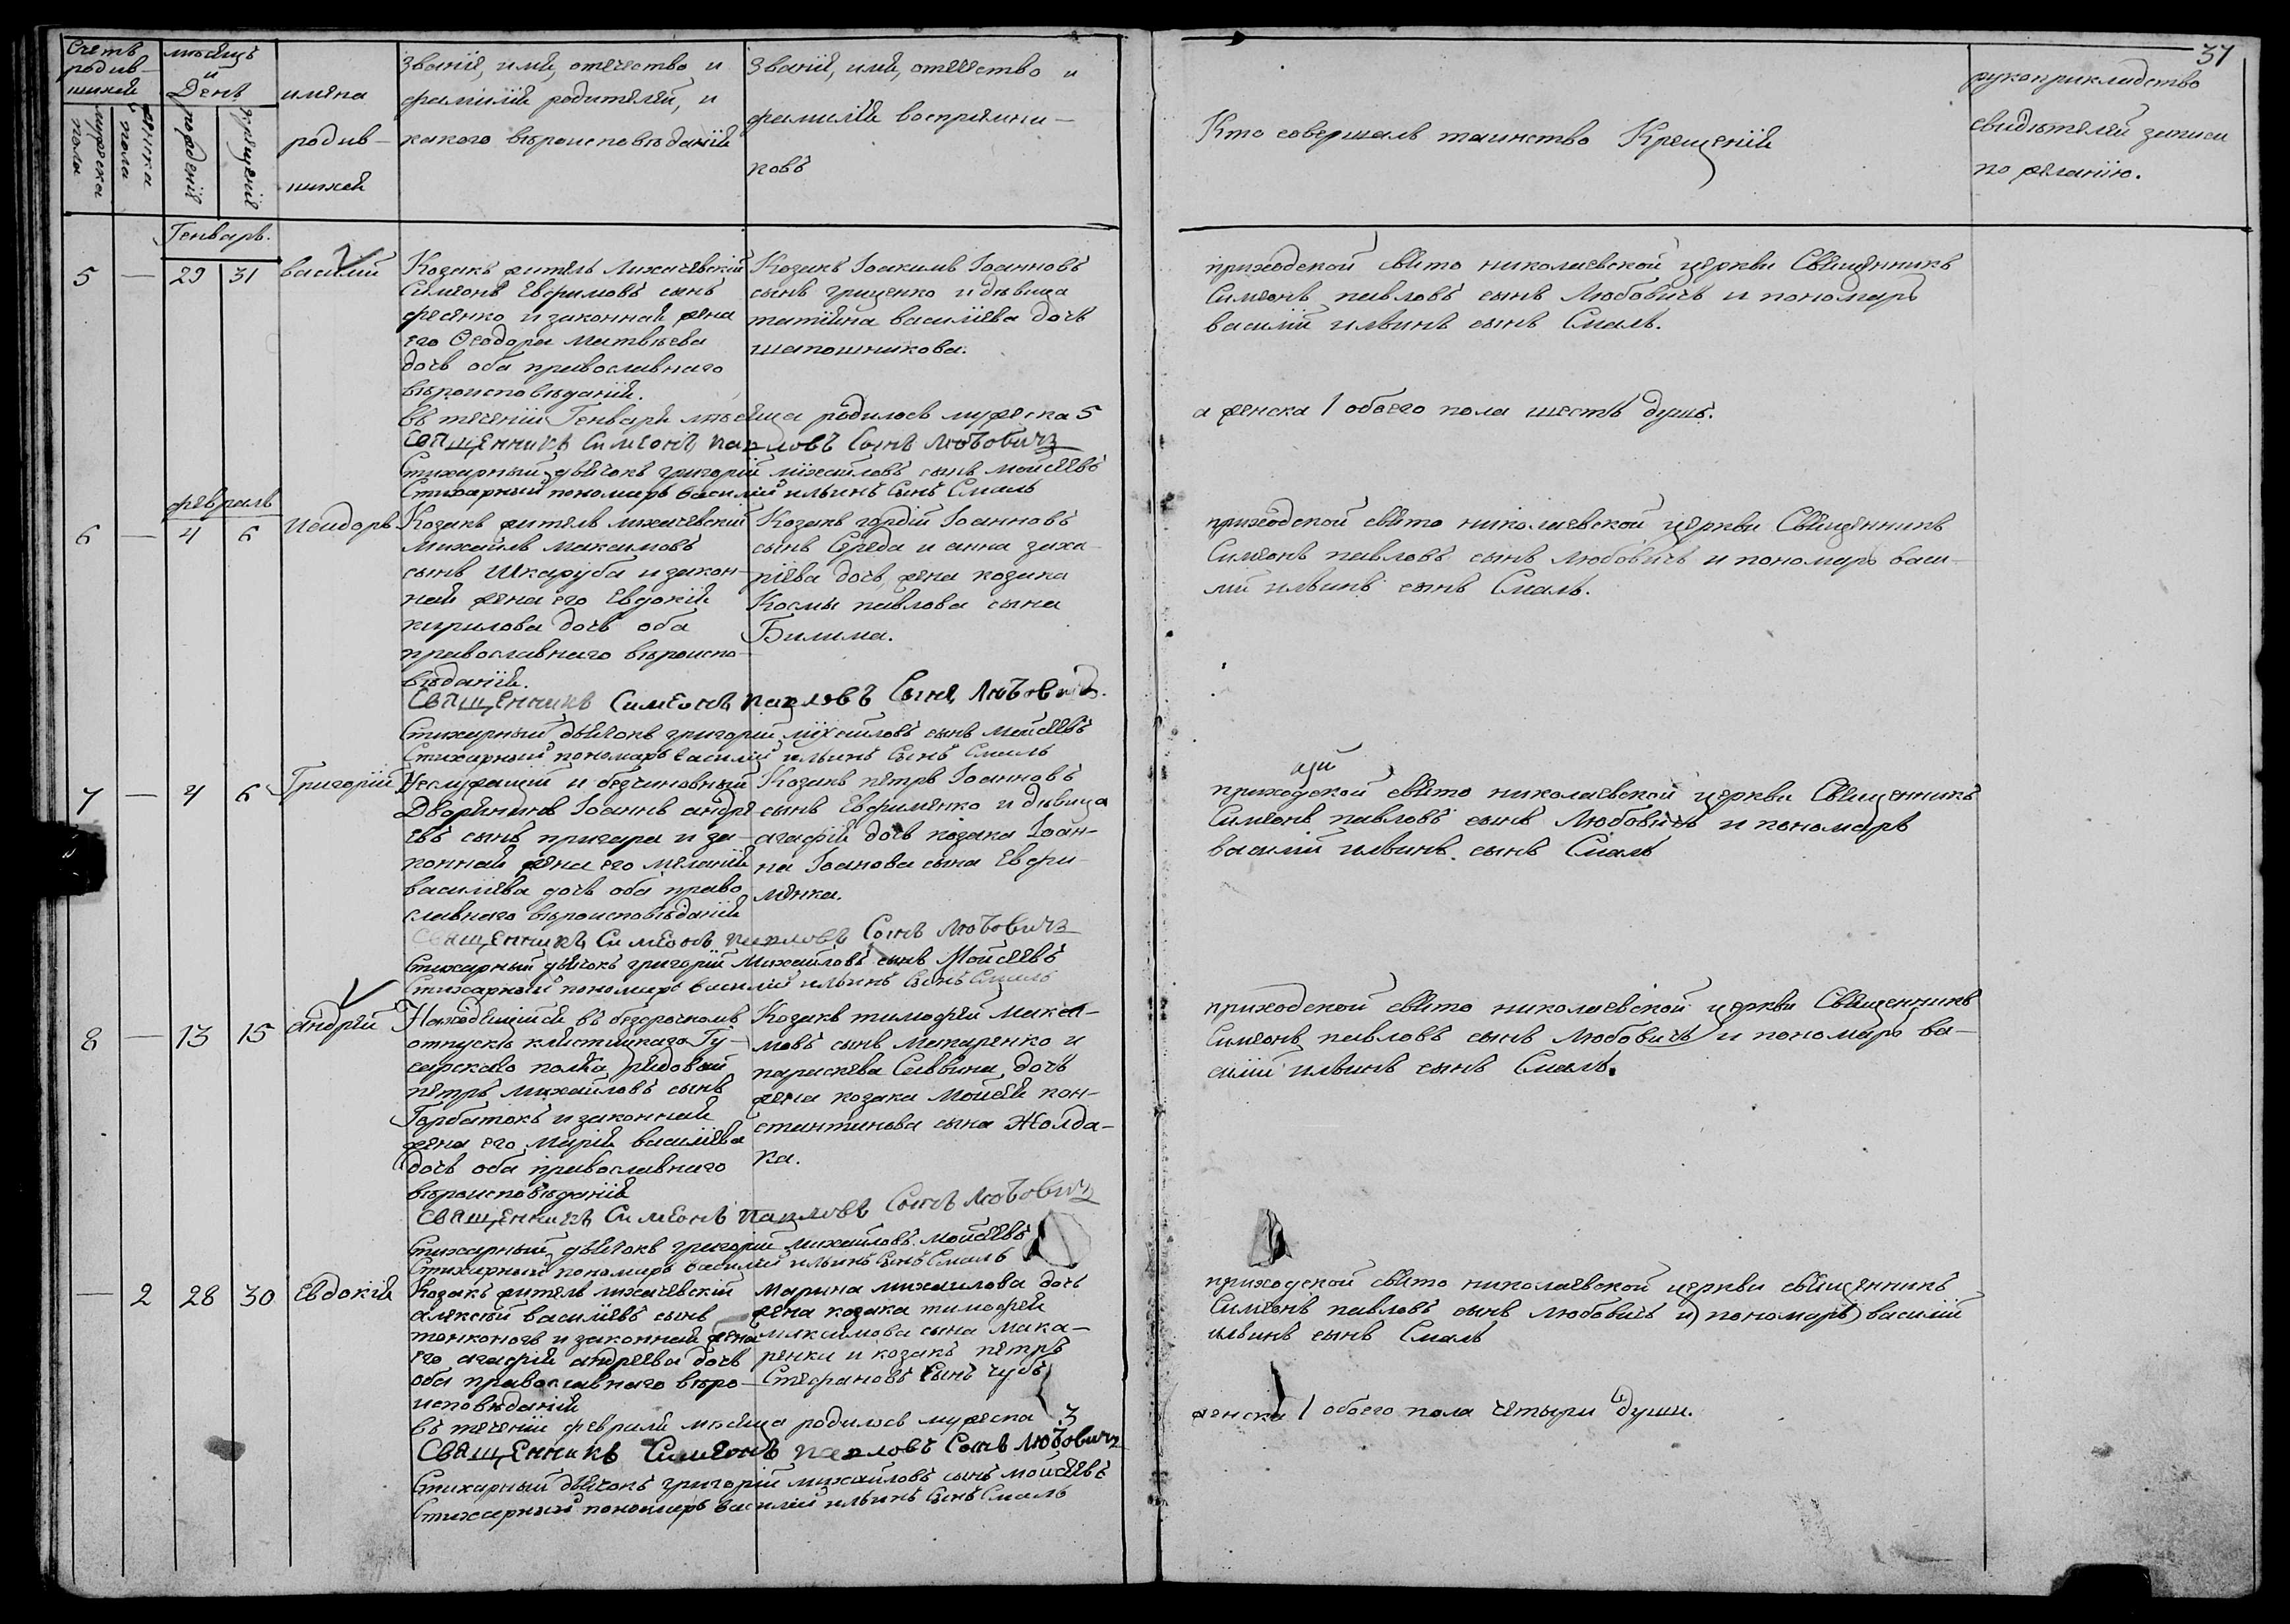 37
Счетъ родив-шихся
мужеска пола
женска пола
мѣсяцъ и День
рожденія
крещенія
имена родив-шихся
Званіе, имя, отечество и
фамилія родителей, и
какого вѣроисповѣданія
Званіе, имя, отечество и
фамилія воспріемни-
ковъ
Кто совершалъ таинство Крещенія
рукоприкладство
свидѣтелей записи
по желанію.
Генварь.
5 — 29 31 василій
Козакъ житель Лихачевскій
Симеонъ Евфимовъ сынъ
фесенко и законная жена
его Ѳеодора Матвѣева
дочь оба православнаго
вѣроисповѣданія.
Козакъ Іоакимъ Іоанновъ
сынъ гриценко и дѣвица
татіяна василіева дочь
шапошникова.
приходской свято николаевской церкви Священникъ
Симеонъ павловъ сынъ Любовичъ и пономарь
василій ильинъ сынъ Смаль.
въ теченіи Генваря мѣсяца родилось мужеска 5
а женска 1 обоего пола шесть душъ.
Священникъ Симеонъ павловъ Сынъ Любовичъ
Стихарный дьячокъ григорій михайловъ сынъ мойсеевъ
Стихарный пономарь василій ильинъ Сынъ Смаль
февраль
6 — 4 6 Исидоръ
Козакъ житель лихачевскій
михаилъ максимовъ
сынъ Шкаруба и закон-
ная жена его Евдокія
кирилова дочь оба
православнаго вѣроиспо-
вѣданія.
Козакъ гордій Іоанновъ
сынъ Середа и анна заха-
ріева дочь, жена козака
Космы павлова сына
Билима.
приходской свято николаевской церкви Священникъ
Симеонъ павловъ сынъ любовичъ и пономарь васи-
лій ильинъ сынъ Смаль.
Священникъ Симеонъ павловъ Сынъ Любовичъ.
Стихарный дьячокъ григорій михайловъ сынъ мойсеевъ
Стихарный пономарь василій ильинъ Сынъ Смаль
7 — 4 6 Григорій
Неслужащій и безчиновный
Дворянинъ Іоаннъ андре
евъ сынъ пригара и за-
конная жена его меланія
василіева дочь оба право
славнаго вѣроисповѣданія
Козакъ петръ Іоанновъ
сынъ Евфименко и дѣвица
агафія дочь козака Іоан-
на Іоанова сына Евфи-
менка.
приходской свято николаевской церкви Священникъ
Симеонъ павловъ сынъ Любовичъ и пономарь
василій ильинъ сынъ Смаль
Священникъ Симеонъ павловъ Сынъ Любовичъ
Стихарный дьячокъ григорій Михайловъ сынъ Мойсеевъ
Стихарный пономарь василій ильинъ Сынъ Смаль
8 — 13 15 андрей
Находящійся въ безсрочномъ
отпускѣ Гу-
сарскаго полка рядовой
петръ михайловъ сынъ
Горбатокъ и законная
жена его марія василіева
дочь оба православнаго
вѣроисповѣданія
Козакъ тимофей макси-
мовъ сынъ Макаренко и
параскева Саввина дочь
жена козака Мойсея кон-
стантинова сына Жолда-
ка.
приходской свято николаевской церкви Священникъ
Симеонъ павловъ сынъ Любовичъ и пономарь ва-
силій ильинъ сынъ Смаль.
Священникъ Симеонъ павловъ Сынъ Любовичъ
Стихарный дьячокъ григорій михайловъ мойсеевъ
Стихарный пономарь василій ильинъ Сынъ Смаль
— 2 28 30 Евдокія
Козакъ житель лихачевскій
алексѣй василіевъ сынъ
тонконогъ и законная жена
его агафія андреева дочь
оба православнаго вѣро-
исповѣданія
марина михаилова дочь
жена козака тимофея
максимова сына Мака-
ренка и козакъ петръ
Стефановъ Сынъ чубъ
приходской свято николаевской церкви священникъ
Симеонъ павловъ сынъ любовичъ и пономарь василій
ильинъ сынъ Смаль
въ теченіи февраля мѣсяца родилось мужеска 3
женска 1 обоего пола четыри души.
Священникъ Симеонъ павловъ Сынъ Любовичъ
Стихарный дьячокъ григорій михайловъ сынъ мойсеевъ
Стихарный пономарь василій ильинъ Сынъ Смаль